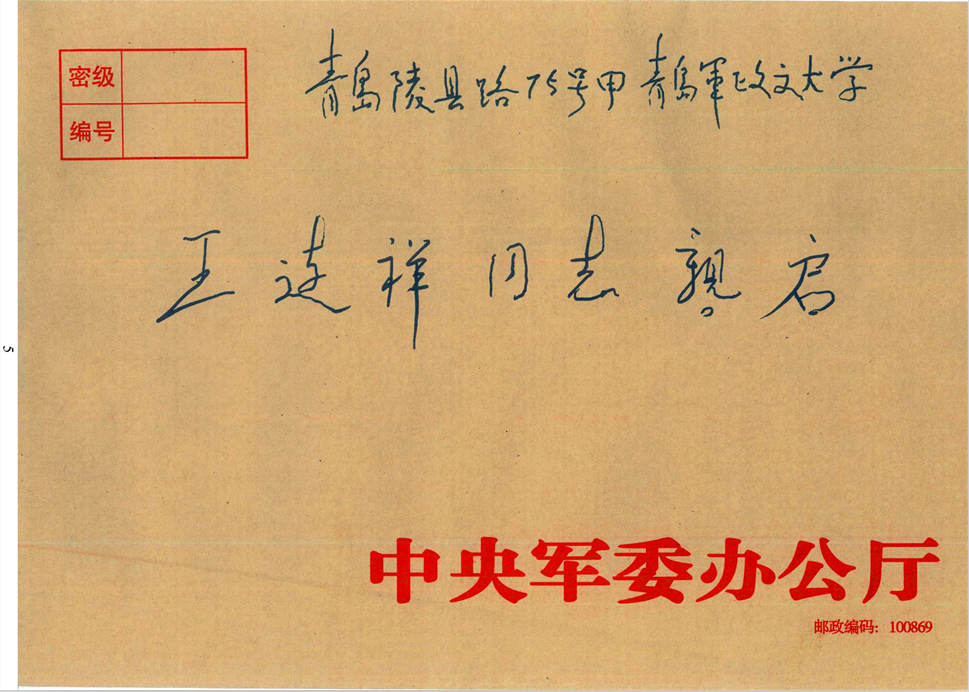 密级
编号
青岛陵县路75号甲 青岛軍政文大学
王建祥同志親启
中央军委办公厅
邮政编码：100869
5